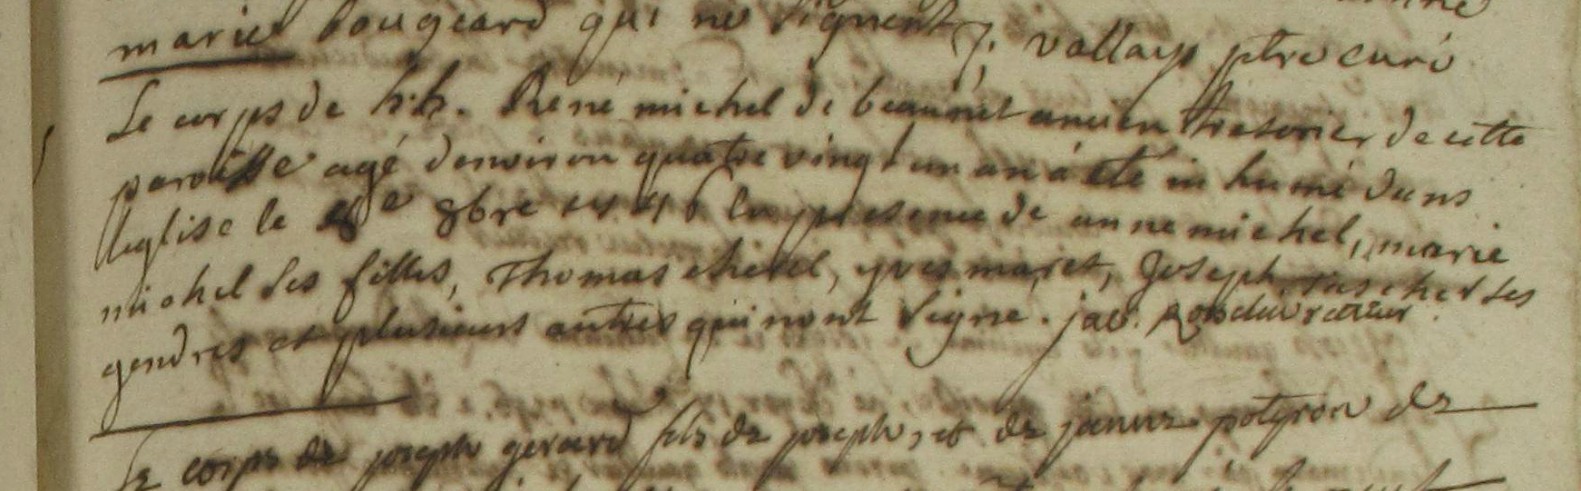 marie Bougeard qui ne signent J. vallays ptre curé
Le corps de h.h. René michel de beaumt ancien tresorier de cette
paroisse agé denviron quatre vingt un an a été inhumé dans
leglise le 8bre 1746 En presence de anne michel, marie
michel ses filles, Thomas chevel, yves maret, Joseph ses
gendres et plusieurs autres qui nont signe. jac. recteur
Le corps de joseph gerard fils de joseph, et de janne potiron de